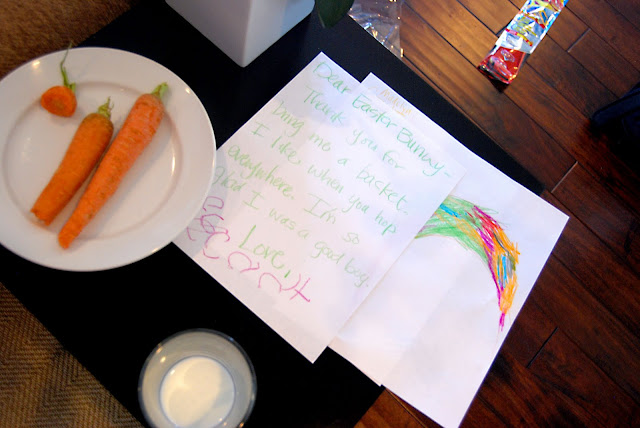 Dear Easter Bunny-
Thank you for
bring me a basket.
I like when you hop
everywhere. I'm so
glad I was a good boy.
Love,